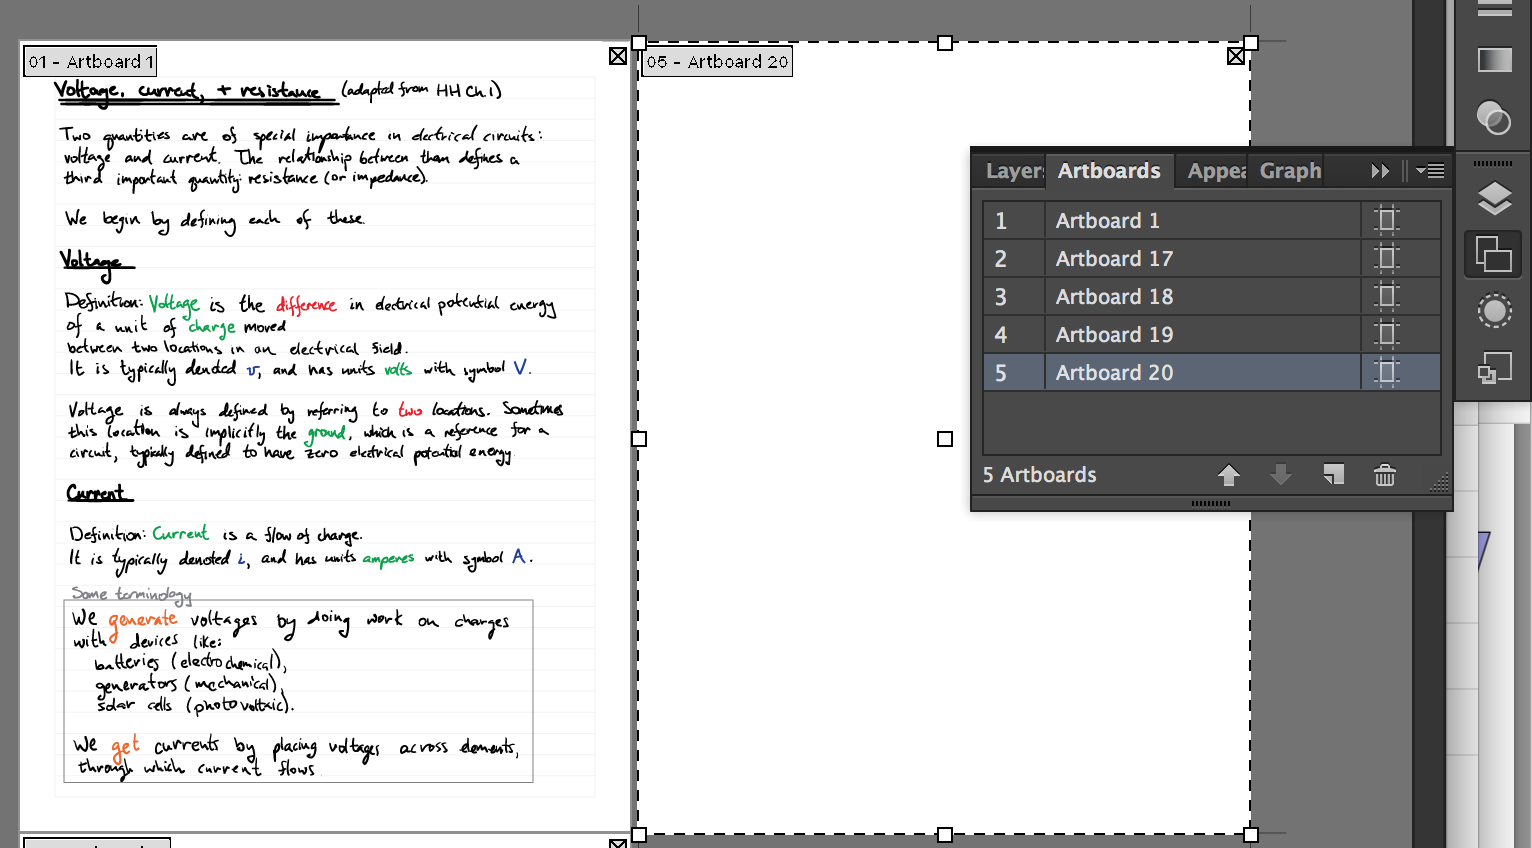 01 - Artboard 1
Voltage, current, + resistance (adapted from HH Ch.1)
Two quantities are of special importance in electrical circuits:
voltage and current. The relationship between them defines a
third important quantity: resistance (or impedance).
We begin by defining each of these.
Voltage
Definition: Voltage is the difference in electrical potential energy
of a unit of charge moved
between two locations in an electrical field.
It is typically denoted v, and has units volts with symbol V.
Voltage is always defined by referring to two locations. Sometimes
this location is implicitly the ground, which is a reference for a
circuit, typically defined to have zero electrical potential energy
Current
Definition: Current is a flow of charge.
It is typically denoted i, and has units amperes with symbol A.
Some terminology
We generate voltages by doing work on charges
with devices like:
batteries (electrochemical),
generators (mechanical),
solar cells (photovoltaic).
We get currents by placing voltages across elements,
through which current flows.
05 - Artboard 20
Layers Artboards Appea Graph
1 Artboard 1
2 Artboard 17
3 Artboard 18
4 Artboard 19
5 Artboard 20
5 Artboards